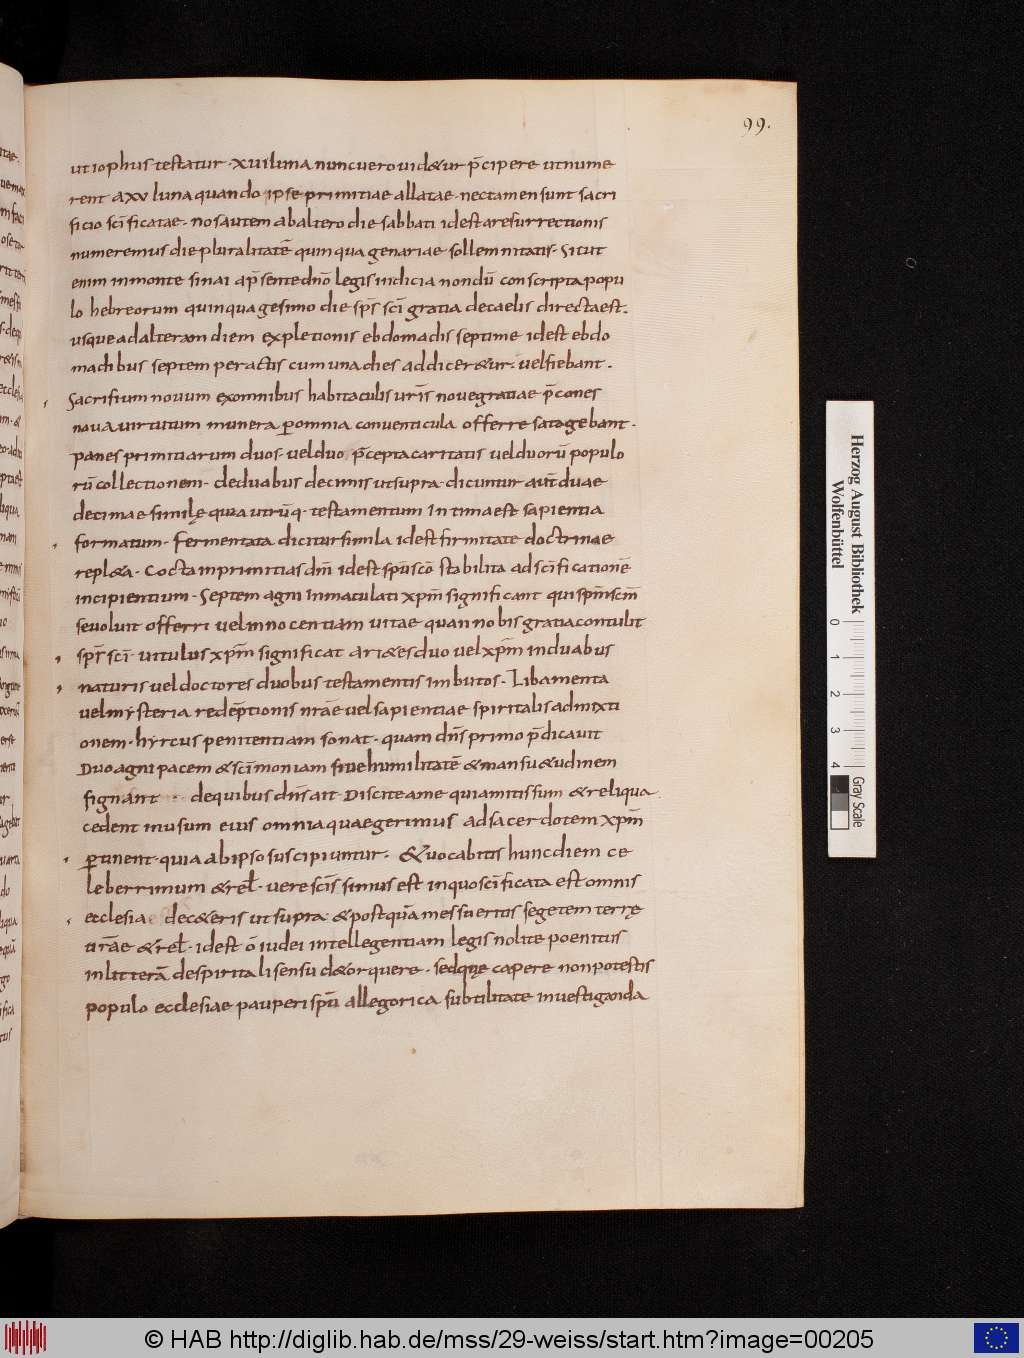 99.
ut iophus testatur · xvii luna nunc uero uid&ur p̄cipere ut nume
rent a xv luna quando ipse primitiae allatae · nec tamen sunt sacri
ficio sc̄ificatae · nos autem ab altero die sabbati id est a resurrectionis
numeremus die pluralitatē quinquagenariae sollemnitatis · Sicut
enim in monte sinai ap̄sente dn̄o legis indicia nondū conscripta popu
lo hebreorum quinquagesimo die sp̄s sc̄i gratia de caelis directa est .
usque ad alteram diem expletionis ebdomadis septime id est ebdo
madibus septem peractis cum una dies addicer&ur · uel fiebant .
Sacrifium nouum ex omnibus habitaculis ur̄is noue gratiae p̄cones
noua uirtutum munera p̱ omnia conuenticula offerre satagebant ·
panes primitiarum duos · uel duo p̄cepta caritatis uel duorū populo
rū collectionem · de duabus decimis ut supra · dicuntur aut̄ duae
decimae similę quia utrūq · testamentum intima est sapientia
formatum · fermentata dicitur simila id est firmitate doctrinae
repl&a · Cocta in primitias dn̄i id est sp̄u sc̄o stabilita ad sc̄ificationē
incipientium · Septem agni inmaculati xp̄m significant qui sp̄m sc̄m
se uoluit offerri uel innocentiam uitae quan nobis gratia contulit
sp̄s sc̄i · uitulus xp̄m significat ari&es duo uel xp̄m in duabus
naturis uel doctores duobus testamentis imbutos · Libamenta
uel mysteria redēptionis nr̄ae uel sapientiae spiritalis admixti
onem · hyrcus penitentiam sonat · quam dn̄s primo p̄dicauit
Duo agni pacem & sc̄imoniam siue humilitatē & mansu&udinem
signant · de quibus dn̄s ait · Discite a me quia mitis sum & reliqua
cedent in usum eius omnia quae gerimus ad sacerdotem xp̄m
p̱tinent · quia ab ipso suscipiuntur · & uocabitis hunc diem ce
leberrimum & rel̄ · uere sc̄is simus est in quo sc̄ificata est omnis
ecclesia dec&eris ut supra · & postquā messueritis segetem terrę
urāe & rel̄ · id est ō iudei intellegentiam legis nolite poenitus
in litterā de spiritali sensu d&orquere · sed quę capere non potestis
populo ecclesiae pauperi sp̄u allegorica subtilitate inuestiganda
Herzog August Bibliothek
Wolfenbüttel
0 1 2 3 4
Gray Scale
© HAB http://diglib.hab.de/mss/29-weiss/start.htm?image=00205